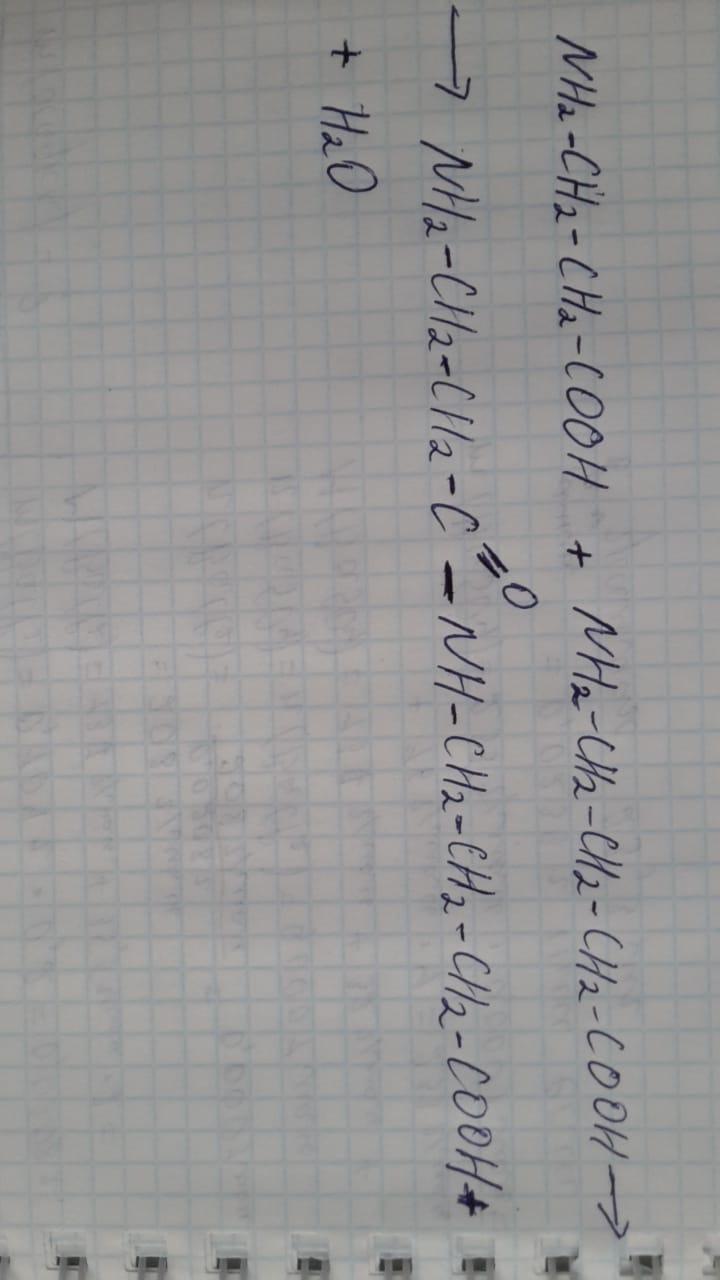 NH₂-CH₂-CH₂-COOH + NH₂-CH₂-CH₂-CH₂-COOH →
→ NH₂-CH₂-CH₂-C(=O)-NH-CH₂-CH₂-CH₂-COOH+
+ H₂O